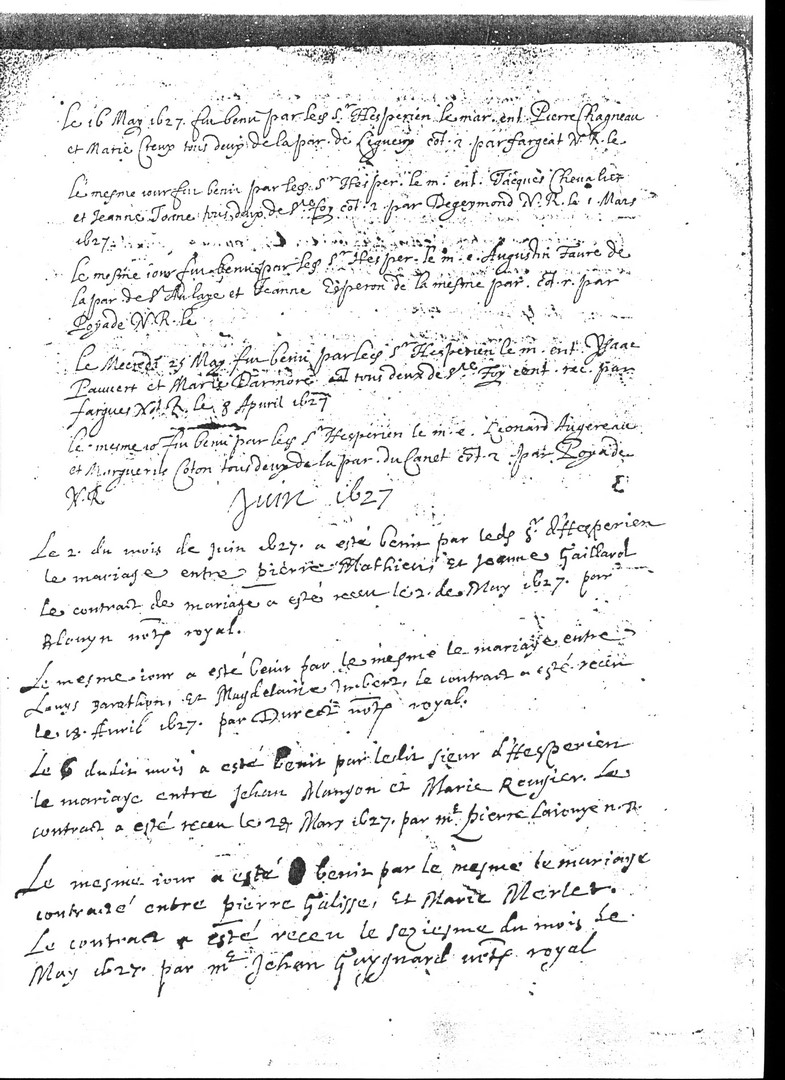 le 16 May 1627. fut beny par led Sr Hesperien le mar. ent. Pierre Chagneau
et Marie Creux tous deux de la par. de Ligueux cōt. r. par fargeat N. R. le
le mesme iour fut benit par led Sr Hesper. le m. ent. Jacques Chevalier
et Jeanne tous deux de Ste foy cōt. r. par Degeymond N. R. le 1. Mars
1627.
le mesme iour fut beny par led Sr Hesper. le m. e. Augustin Faure de
la par de St Aulaye et Jeanne Esperon de la mesme par. cōt. r. par
Poyade N. R. le
le Mecredi 25 May fut beny par led Sr Hesperien le m. ent. Ysaac
Pauvert et Marie Darmore tous deux de Ste Foy cont. rec. par
fargues Not. R. le 8 Apuril 1627
le mesme io fut beny par led Sr Hesperien le m. e. Leonard Augereau
et Marguerite Coton tous deux de la par. du Canet cōt. r. par Poyade
N. R.
Juin 1627
Le 2. du mois de Juin 1627. a esté benit par led Sr. d'Hesperien
le mariage entre pierre Mathieu, et Jeanne Gaillard
Le contract de mariage a esté receu le 2. de May 1627. par
notre royal.
Le mesme iour a esté benit par le mesme le mariage entre
Louys Barathon, Et Magdelaine Imbert, le contract a esté receu
le 18. Avril 1627. par Duret notre royal.
Le 6 dudit mois a esté benit par ledit sieur d'Hesperien
le mariage entre Jehan Manyon et Marie Rengier. Le
contract a esté receu le 28 Mars 1627. par me pierre Lajonye n. R.
Le mesme iour a esté benit par le mesme le mariage
contracté entre pierre Galisse, Et Marie Merlet.
Le contract a esté receu le seziesme du mois de
May 1627. par me Jehan Guygnard notre royal